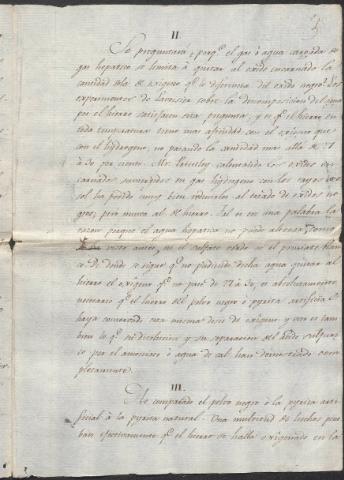 II.
Se preguntará, porq.e el gas ó agua cargada de
gas hepatico se limita á quitar al oxido encarnado la
cantidad sola de oxigeno q.e le diferencia del oxido negro? Los
experimentos de Lavoisier sobre la decomposicion del agua
por el hierro satisfacen esta pregunta, y es q.e el hierro en
toda temperatura tiene mas afinidad con el oxigeno que
con el hydrogeno, no pasando la cantidad mas alla de 27
á 30 por ciento. Mr. Priestley calentando los oxidos en-
carnados sumergidos en gas hidrogeno con los rayos del
sol ha podido muy bien reducirlos al estado de oxidos ne-
gros; pero nunca al de hierro. Tal es en una palabra la
razon porque el agua hepatica no puede alterar, como
visto antes, ni el sulfate ni el prusiate blan-
co. De donde se sigue q.e no pudiendo dicha agua quitar al
hierro el oxigeno q.e no pase de 27 á 30, es absolutamente
necesario q.e el hierro del polvo negro ó pyrita artificial
haya conservado esta misma dosis de oxigeno y esto es tam-
bien lo q.e su disolucion y su separacion del acido sulfuri-
co por el amoniaco ó agua de cal han demostrado com-
pletamente.
III.
He comparado el polvo negro ó la pyrita arti-
ficial á la pyrita natural. Una multitud de hechos prue-
ban efectivamente q.e el hierro se halla oxigenado en la